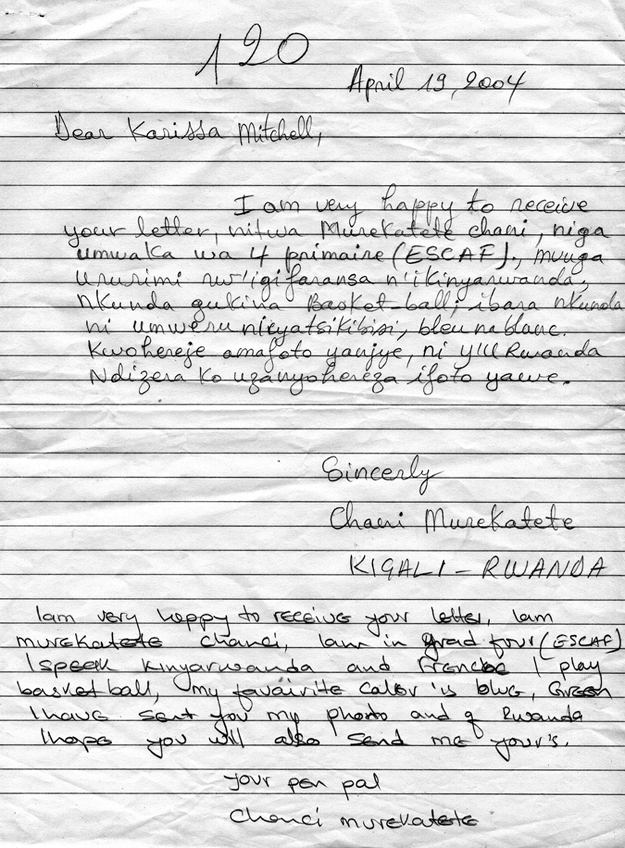 120
April 19, 2004
Dear Karissa Mitchell,
I am very happy to receive
your letter, nitwa Murekatete chani, niga
umwaka wa 4 primaire (ESCAF)., mvuga
Ururimi rw'igifaransa n'ikinyarwanda,
Nkunda gukina Basket-ball; ibara nkunda
ni umweru n'icyatsikibisi, bleu na blanc.
Kwohereje amafoto yanjye, ni y'U Rwanda
Ndizera ko uzanyohereza ifoto yawe.
Sincerly
Chani Murekatete
KIGALI - RWANDA
Iam very happy to receive your letter, Iam
murekatete chanci, Iam in grad four (ESCAF)
I speek kinyarwanda and I play
basket ball, my favairite caler is blue, Green
I have sent you my photo and of Rwanda
I hope you will also send me your's.
your pen pal
chanci murekatete